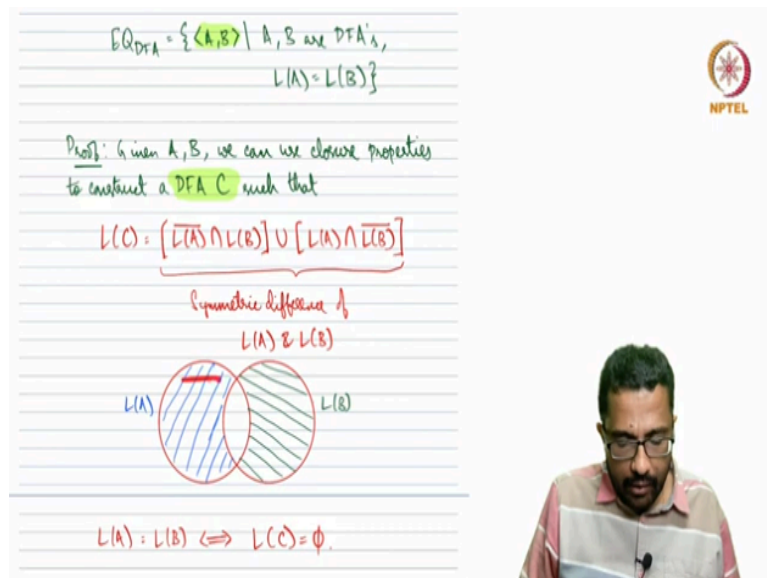 EQ_DFA = {⟨A,B⟩ | A, B are DFA's,
L(A) = L(B)}
NPTEL
Proof: Given A, B, we can use closure properties
to construct a DFA C such that
L(C) = [L̅(̅A̅)̅ ∩ L(B)] ∪ [L(A) ∩ L̅(̅B̅)̅]
Symmetric difference of
L(A) & L(B)
L(A) L(B)
L(A) = L(B) ⟺ L(C) = ϕ.